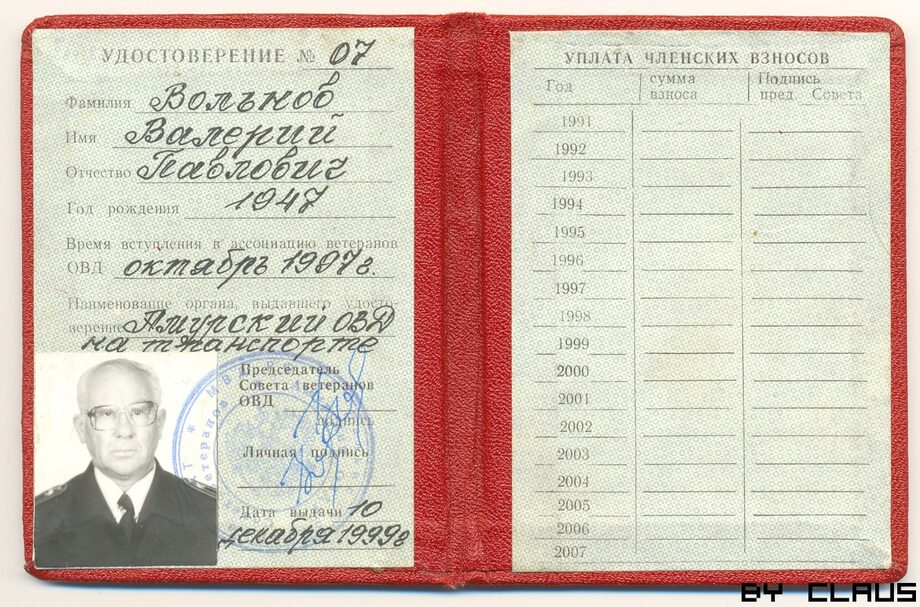 УДОСТОВЕРЕНИЕ № 07
Фамилия Вольнов
Имя Валерий
Отчество Павлович
Год рождения 1947
Время вступления в ассоциацию ветеранов
ОВД октябрь 1997 г.
Наименование органа, выдавшего удосто-
верение Амурский ОВД
на транспорте
Председатель
Совета ветеранов
ОВД
подпись
Личная подпись
Дата выдачи 10
декабря 1999 г
УПЛАТА ЧЛЕНСКИХ ВЗНОСОВ
Год сумма взноса Подпись пред. Совета
1991
1992
1993
1994
1995
1996
1997
1998
1999
2000
2001
2002
2003
2004
2005
2006
2007
BY CLAUS